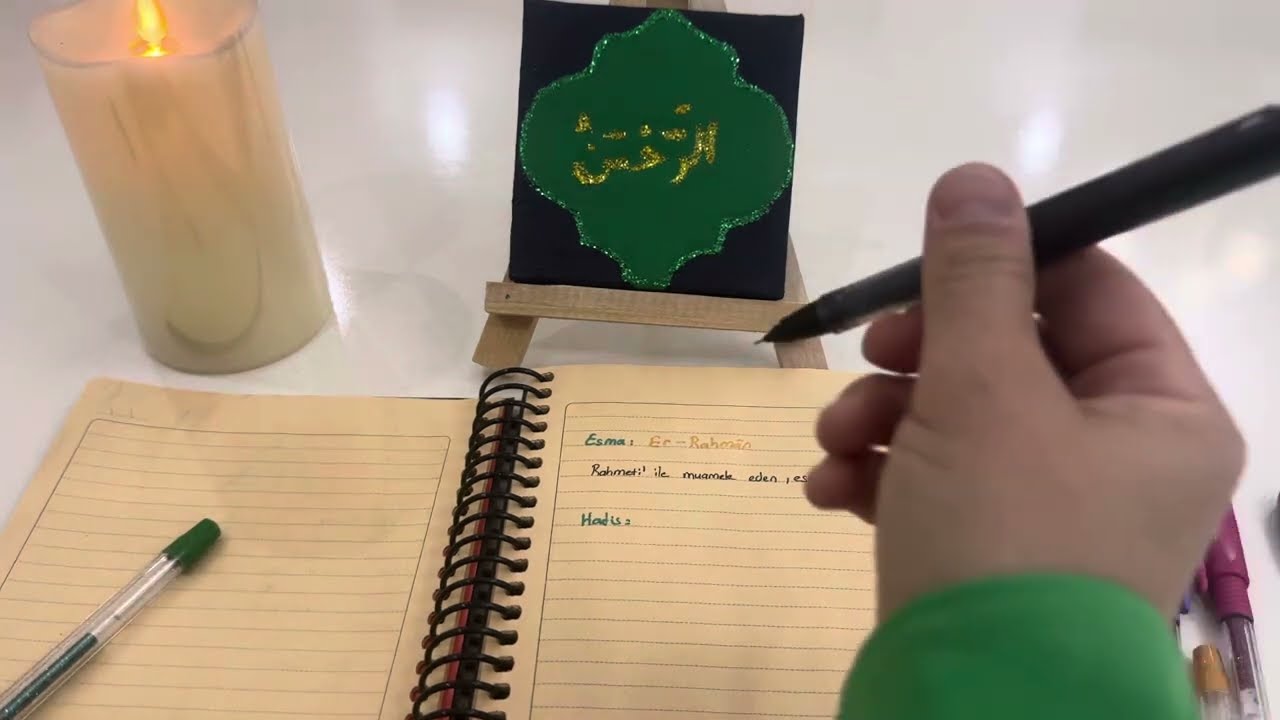 الرَّحْمٰنُ
Esma: Er-Rahmân
Rahmeti' ile muamele eden, es
Hadis: